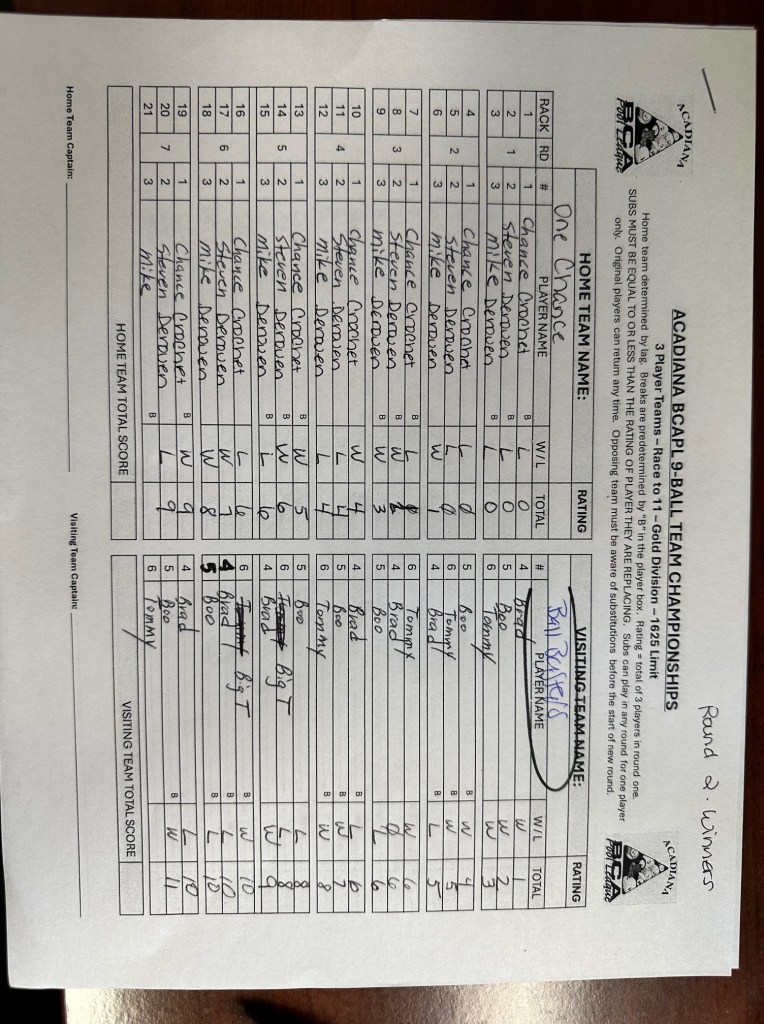 Round 2. Winners
ACADIANA BCA Pool League
ACADIANA BCAPL 9-BALL TEAM CHAMPIONSHIPS
ACADIANA BCA Pool League
3 Player Teams – Race to 11 – Gold Division – 1625 Limit
Home team determined by lag. Breaks are predetermined by "B" in the player box. Rating = total of 3 players in round one.
SUBS MUST BE EQUAL TO OR LESS THAN THE RATING OF PLAYER THEY ARE REPLACING. Subs can play in any round for one player
only. Original players can return any time. Opposing team must be aware of substitutions before the start of new round.
HOME TEAM NAME: RATING VISITING TEAM NAME: RATING
One Chance Ball Busters
RACK RD # PLAYER NAME W/L TOTAL # PLAYER NAME W/L TOTAL
1 1 Chance Crochet B L 0 4 Brad W 1
2 1 2 Steven Derouen B L 0 5 Boo W 2
3 3 Mike Derouen B L 0 6 Tommy W 3
4 1 Chance Crochet L 0 5 Boo B W 4
5 2 2 Steven Derouen L 0 6 Tommy B W 5
6 3 Mike Derouen W 1 4 Brad B L 5
7 1 Chance Crochet B L 6 Tommy W 6
8 3 2 Steven Derouen B W 4 Brad 6
9 3 Mike Derouen B W 3 5 Boo L 6
10 1 Chance Crochet W 4 4 Brad B L 6
11 4 2 Steven Derouen L 4 5 Boo B W 7
12 3 Mike Derouen L 4 6 Tommy B W 8
13 1 Chance Crochet B W 5 5 Boo L 8
14 5 2 Steven Derouen B W 6 6 Big T L 8
15 3 Mike Derouen B L 6 4 Brad W 9
16 1 Chance Crochet L 6 6 Big T B W 10
17 6 2 Steven Derouen W 7 4 Brad B L 10
18 3 Mike Derouen W 8 5 Boo B L 10
19 1 Chance Crochet B W 9 4 Brad L 10
20 7 2 Steven Derouen B L 9 5 Boo B W 11
21 3 Mike B 6 Tommy
HOME TEAM TOTAL SCORE VISITING TEAM TOTAL SCORE
Home Team Captain: Visiting Team Captain: